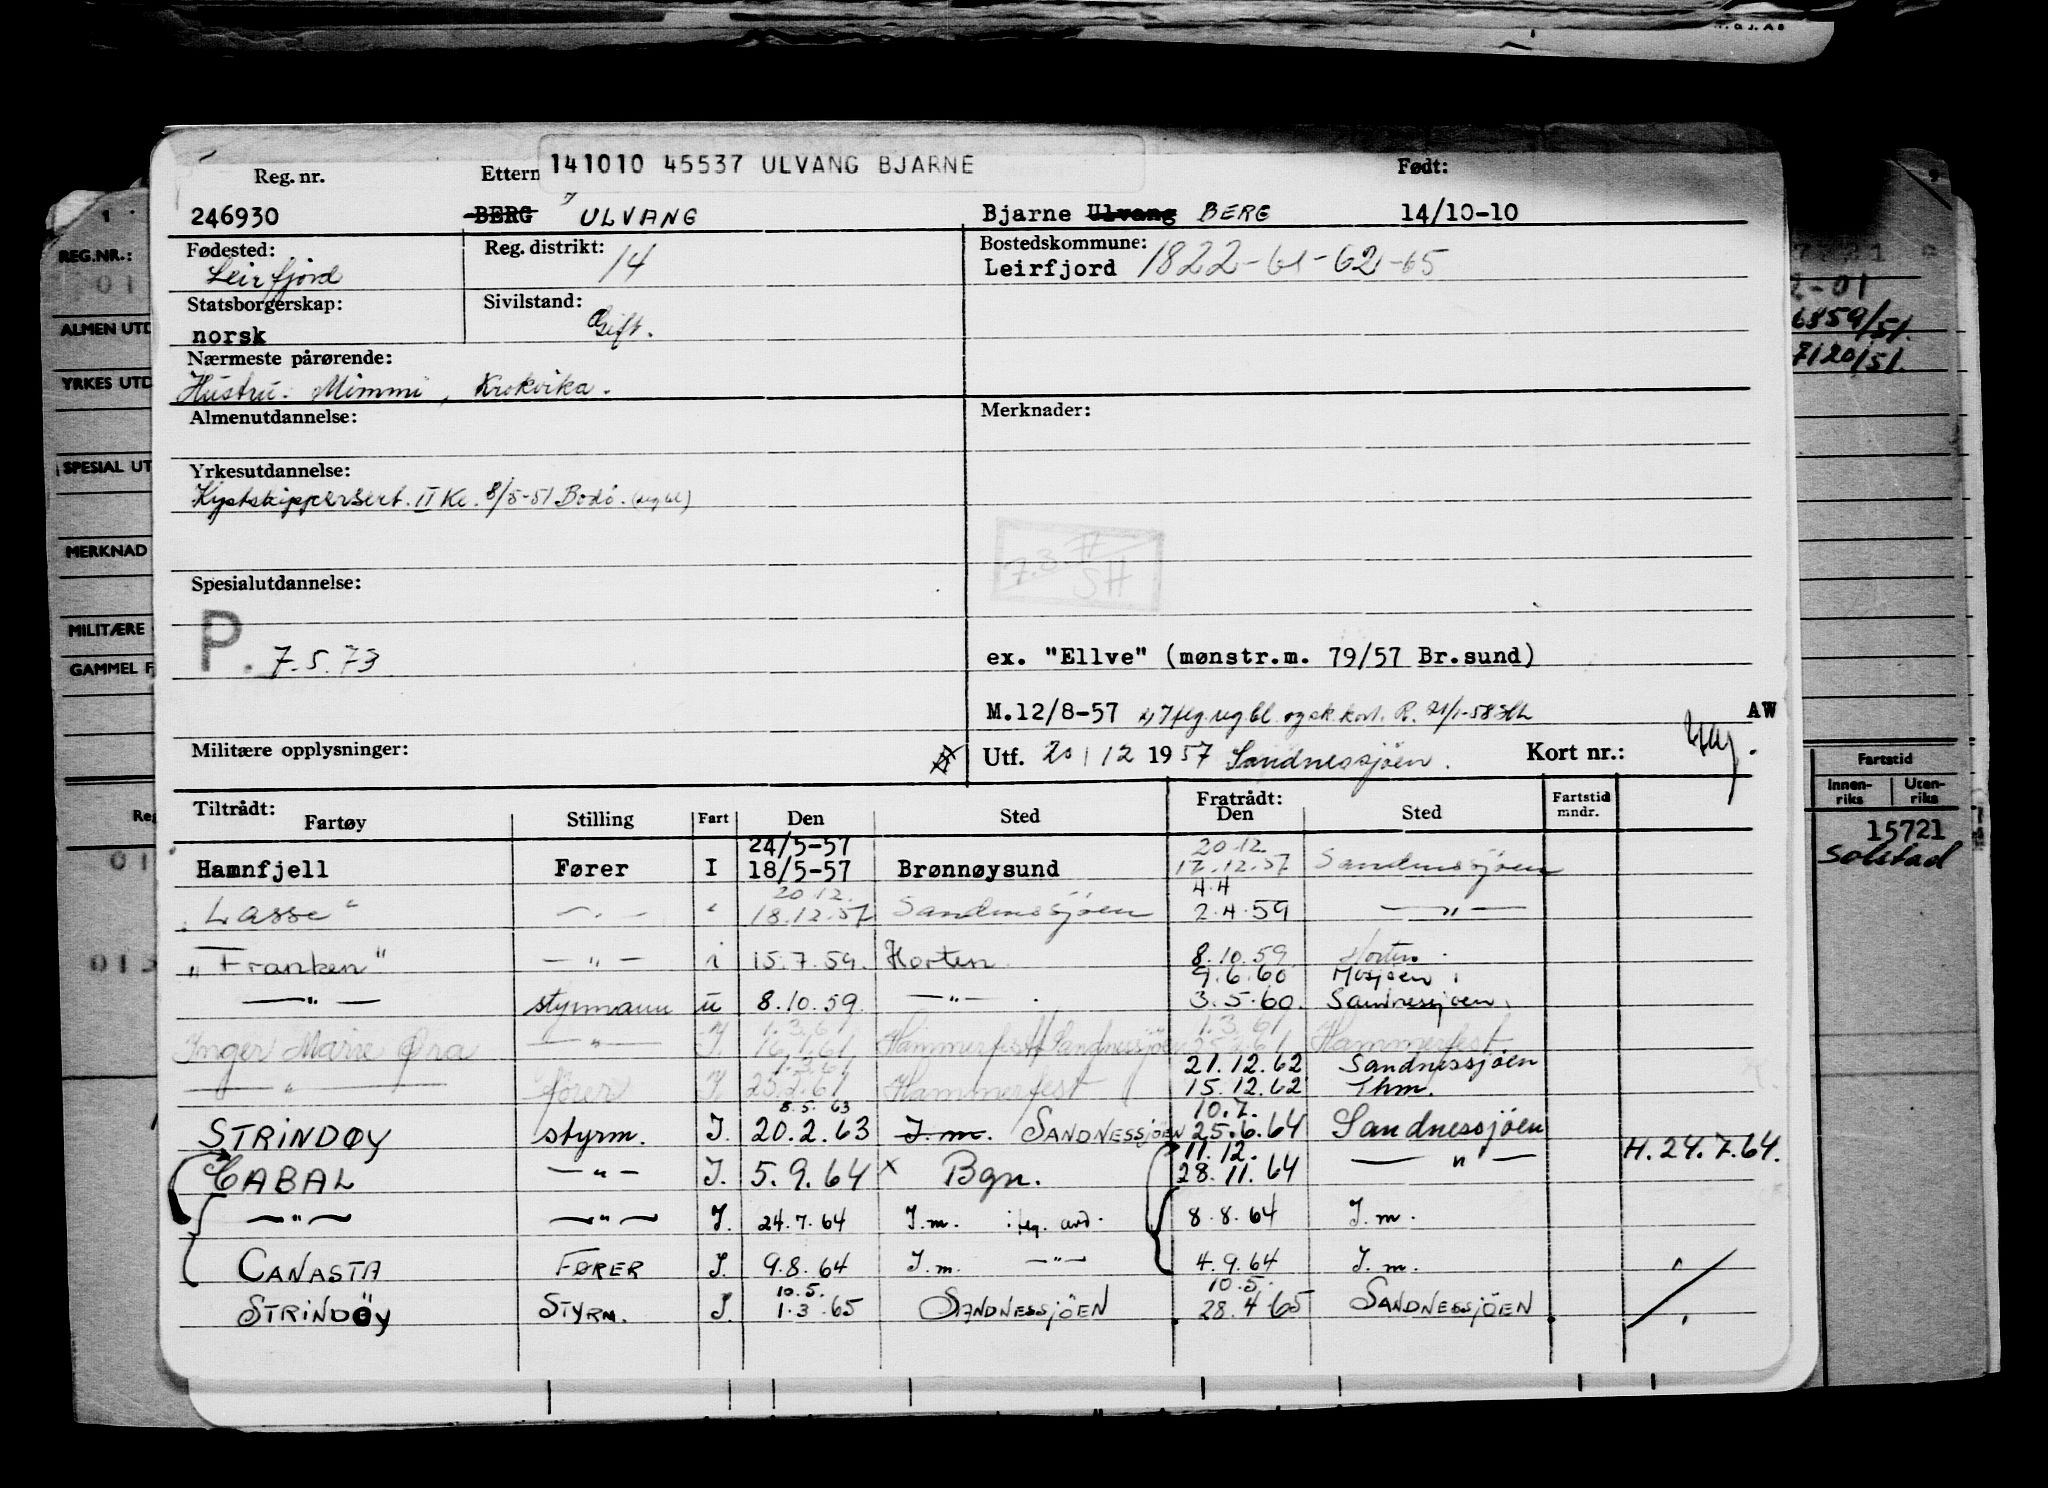 141010 45537 ULVANG BJARNE
Reg. nr. Ettern Født:
246930 BERG ULVANG Bjarne Ulvang BERG 14/10-10
Fødested: Reg. distrikt: 14 Bostedskommune:
Leirfjord Leirfjord 1822-61-62-65
Statsborgerskap: Sivilstand:
norsk Gift.
Nærmeste pårørende:
Hustru: Mimmi, Krokvika.
Almenutdannelse: Merknader:
Yrkesutdannelse:
Kystskippersert. II Kl. 8/5-51 Bodø. (reg bl)
7.3.77
SH
Spesialutdannelse:
P. 7.5.73
ex. "Ellve" (mønstr.m. 79/57 Br.sund)
M.12/8-57 AW
Militære opplysninger: Utf. 20/12 1957 Sandnessjöen. Kort nr.:
Tiltrådt: Fratrådt:
Fartøy Stilling Fart Den Sted Den Sted Fartstid mndr.
24/5-57 20.12.
Hamnfjell Fører I 18/5-57 Brønnøysund 17.12.57 Sandnessjöen
20.12. 4.4
"Lasse" — " — " 18.12.57 Sandnessjöen 2.4.59 — " —
"Franken" — " — i 15.7.59. Horten 8.10.59. Horten.
9.6.60 Mosjøen
— " — styrmann u 8.10.59. — " — 3.5.60. Sandnessjøen.
1.3.61 1.3.61
Inger Marie Øra — " — I. 16.1.61 Hammerfest Sandnessjöen 25.2.61 Hammerfest
1.3.61 21.12.62 Sandnessjöen
— " — fører I. 25.2.61 Hammerfest 15.12.62 Thm.
8.5.63 10.7.
STRINDØY styrm. I. 20.2.63 I.m. SANDNESSJÖEN 25.6.64 Sandnessjöen
11.12. H.24.7.64.
CABAL — " — I. 5.9.64 x Bgn. 28.11.64 — " —
— " — — " — I. 24.7.64 I.m. 8.8.64 I.m.
CANASTA FØRER I. 9.8.64 I.m. — " — 4.9.64 I.m. "
10.5. 10.5.
STRINDÖY STYRM. I. 1.3.65 SANDNESSJÖEN 28.4.65 SANDNESSJÖEN "
REG.NR.:
ALMEN UTD
YRKES UTD
SPECIAL UT
MERKNAD
MILITÆRE
GAMMEL F
Reg
2-01
6859/51.
7120/51.
Fartstid
Innen-riks Uten-riks
15721
Solstad